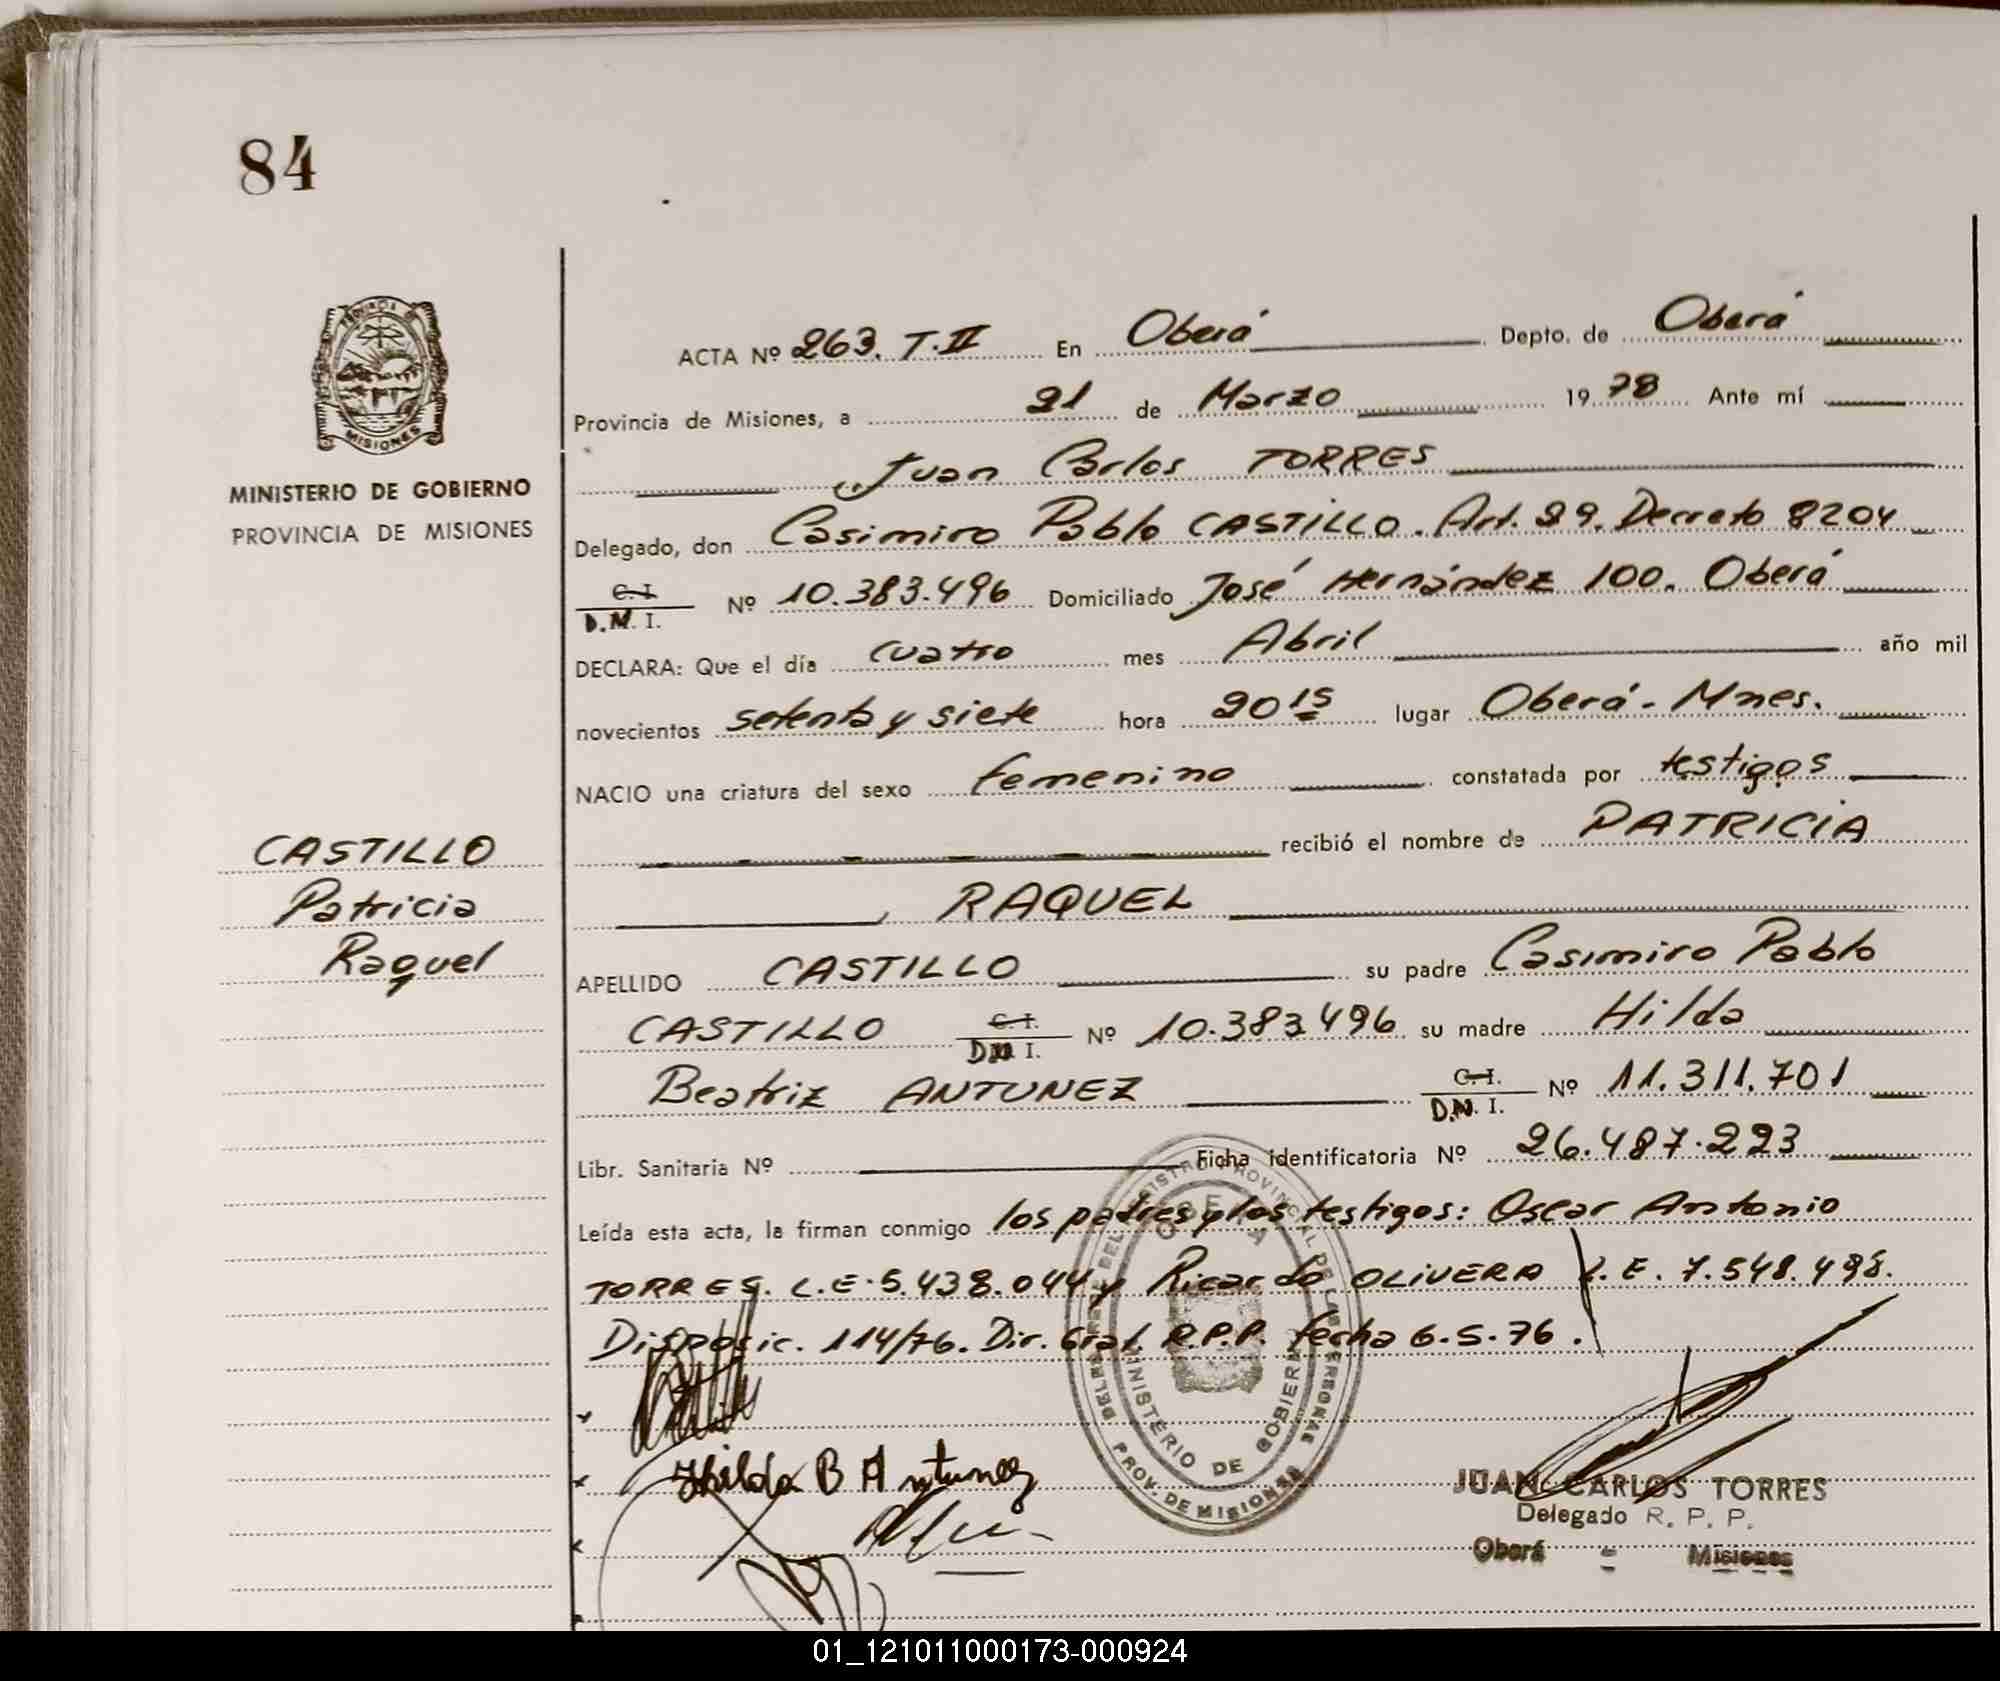 84
PROVINCIA
MISIONES
MINISTERIO DE GOBIERNO
PROVINCIA DE MISIONES
CASTILLO
Patricia
Raquel
ACTA Nº 263. T.II En Oberá Depto. de Oberá
Provincia de Misiones, a 21 de Marzo 1978 Ante mí
Juan Carlos TORRES
Delegado, don Casimiro Pablo CASTILLO. Art. 29. Decreto 8204
C.I.
D.N.I. Nº 10.383.496 Domiciliado José Hernández 100. Oberá
DECLARA: Que el día cuatro mes Abril año mil
novecientos setenta y siete hora 20 15 lugar Oberá - Mnes.
NACIO una criatura del sexo femenino constatada por testigos
recibió el nombre de PATRICIA
RAQUEL
APELLIDO CASTILLO su padre Casimiro Pablo
CASTILLO C.I. D.N.I. Nº 10.383496 su madre Hilda
Beatriz ANTUNEZ C.I. D.N.I. Nº 11.311.701
Libr. Sanitaria Nº Ficha identificatoria Nº 26.487.223
Leída esta acta, la firman conmigo los padres y los testigos: Oscar Antonio
TORRES. L.E. 5.438.044 y Ricardo OLIVERA L.E. 7.548.498.
Disposic. 114/76. Dir. Gral. R.P.P. fecha 6.5.76.
REGISTRO PROVINCIAL DE LAS PERSONAS
MINISTERIO DE GOBIERNO
PROV. DE MISIONES
Hilda B Antunez
JUAN CARLOS TORRES
Delegado R. P. P.
Oberá - Misiones
01_121011000173-000924